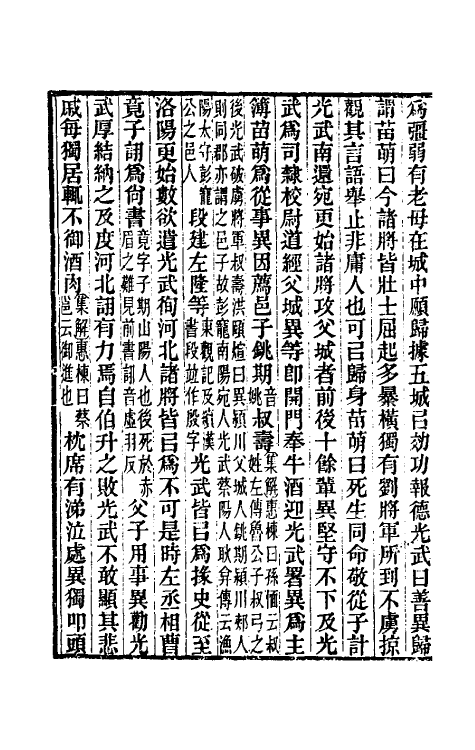 爲彊弱有老母在城中願歸據五城㠯効功報德光武曰善異歸
謂苗萌曰今諸將皆壯士屈起多暴橫獨有劉將軍所到不虜掠
觀其言語舉止非庸人也可㠯歸身苗萌曰死生同命敬從子計
光武南還宛更始諸將攻父城者前後十餘輩異堅守不下及光
武爲司隸校尉道經父城異等卽開門奉牛酒迎光武署異爲主
簿苗萌爲從事異因薦邑子銚期音姚叔壽集解惠棟曰孫愐云叔姓左傳魯公子叔弓之
後光武破虜將軍叔壽洪頤煊曰異潁川父城人銚期潁川郟人則同郡亦謂之邑子故彭寵南陽宛人光武蔡陽人耿弇傳云漁
陽太守彭寵公之邑人段建左隆等東觀記及續漢書段並作殷字光武皆㠯爲掾史從至
洛陽更始數欲遣光武徇河北諸將皆㠯爲不可是時左丞相曹
竟子詡爲尚書竟字子期山陽人也後死於赤眉之難見前書詡音虛羽反父子用事異勸光
武厚結納之及度河北詡有力焉自伯升之敗光武不敢顯其悲
戚每獨居輒不御酒肉集解惠棟曰蔡邕云御進也枕席有涕泣處異獨叩頭